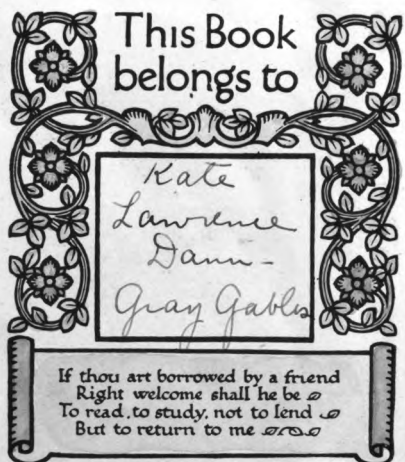 This Book
belongs to
Kate
Lawrence
Dann-
Gray Gables
If thou art borrowed by a friend
Right welcome shall he be
To read, to study, not to lend
But to return to me